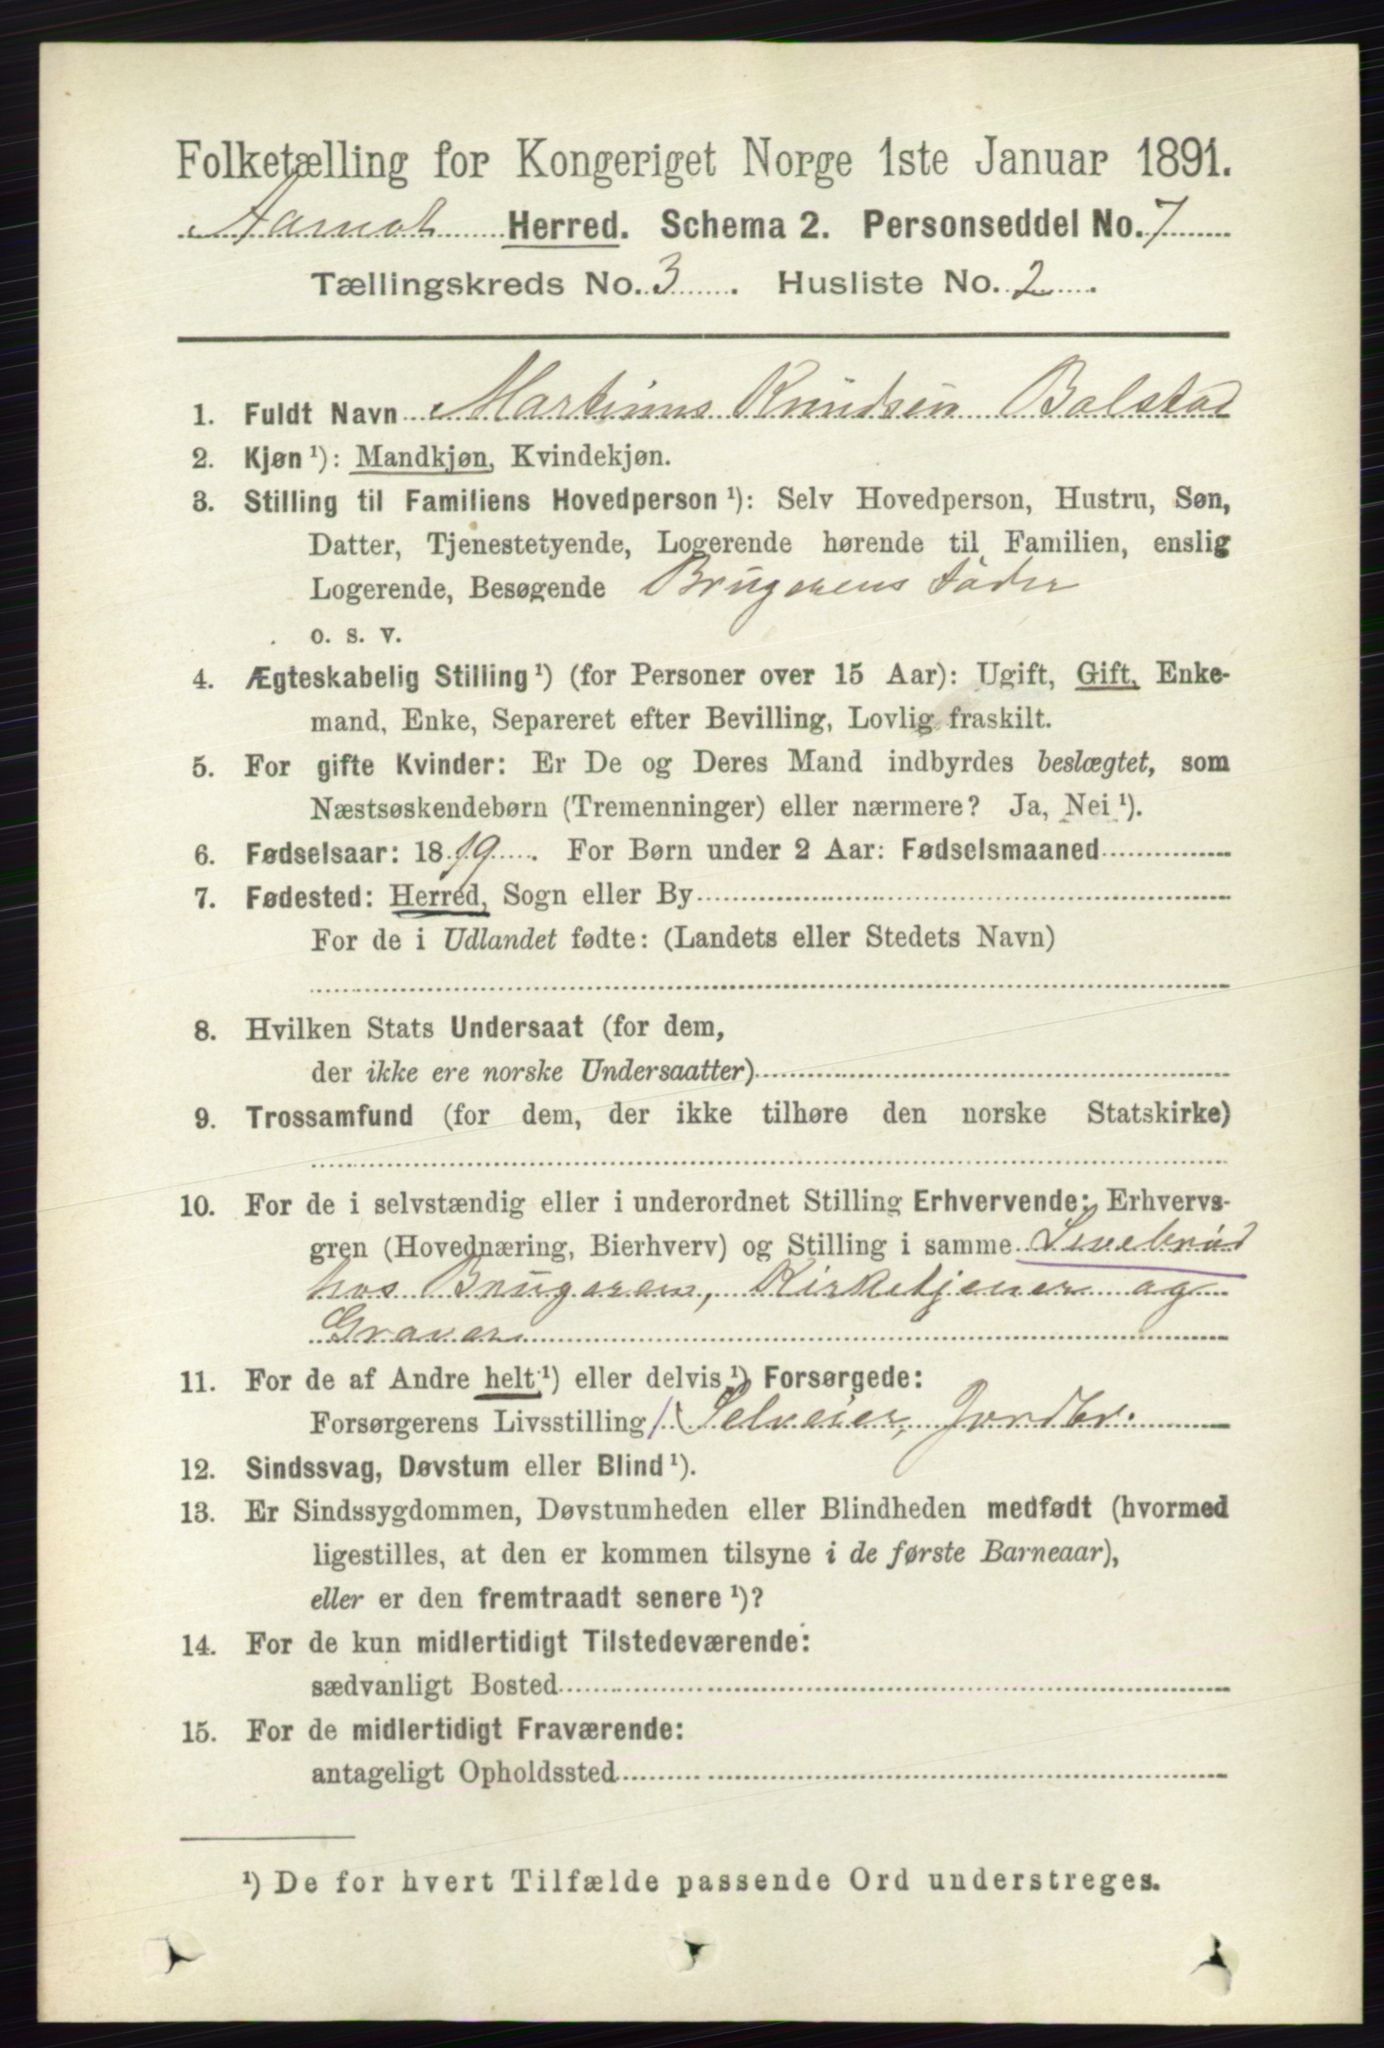 Folketælling for Kongeriget Norge 1ste Januar 1891.
Aamot Herred. Schema 2. Personseddel No. 7
Tællingskreds No. 3. Husliste No. 2.
1. Fuldt Navn Martinus Knudsen Bolstad
2. Kjøn ¹): Mandkjøn, Kvindekjøn.
3. Stilling til Familiens Hovedperson ¹): Selv Hovedperson, Hustru, Søn,
Datter, Tjenestetyende, Logerende hørende til Familien, enslig
Logerende, Besøgende Brugerens Fader
o. s. v.
4. Ægteskabelig Stilling ¹) (for Personer over 15 Aar): Ugift, Gift, Enke-
mand, Enke, Separeret efter Bevilling, Lovlig fraskilt.
5. For gifte Kvinder: Er De og Deres Mand indbyrdes beslægtet, som
Næstsøskendebørn (Tremenninger) eller nærmere? Ja, Nei ¹).
6. Fødselsaar: 1819. For Børn under 2 Aar: Fødselsmaaned
7. Fødested: Herred, Sogn eller By
For de i Udlandet fødte: (Landets eller Stedets Navn)
8. Hvilken Stats Undersaat (for dem,
der ikke ere norske Undersaatter)
9. Trossamfund (for dem, der ikke tilhøre den norske Statskirke)
10. For de i selvstændig eller i underordnet Stilling Erhvervende: Erhvervs-
gren (Hovednæring, Bierhverv) og Stilling i samme Livebrød
hos Brugeren, Kirketjener og
Graver
11. For de af Andre helt ¹) eller delvis ¹) Forsørgede:
Forsørgerens Livsstilling Selveier, Jordbr.
12. Sindssvag, Døvstum eller Blind ¹).
13. Er Sindssygdommen, Døvstumheden eller Blindheden medfødt (hvormed
ligestilles, at den er kommen tilsyne i de første Barneaar),
eller er den fremtraadt senere ¹)?
14. For de kun midlertidigt Tilstedeværende:
sædvanligt Bosted
15. For de midlertidigt Fraværende:
antageligt Opholdssted
¹) De for hvert Tilfælde passende Ord understreges.